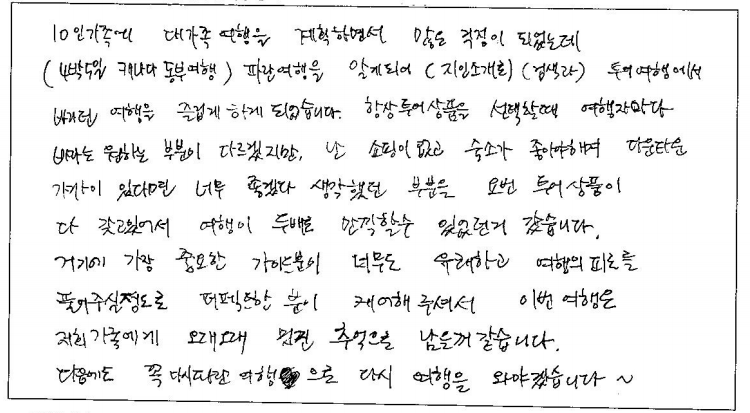 10인가족에 대가족 여행을 계획하면서 많은 걱정이 되었는데
(4박5일 캐나다 동부여행) 파란여행을 알게되어 (지인소개로) (검색과) 투어여행에서
바라던 여행을 즐겁게 하게 되었습니다. 항상 투어상품을 선택할때 여행자마다
바라는 원하는 부분이 다르겠지만, 난 쇼핑이 없고 숙소가 좋아야하며 다운타운
가까이 있다면 너무 좋겠다 생각했던 부분을 요번 투어상품이
다 갖고있어서 여행이 두배로 만끽할수 있었던거 같습니다.
거기에 가장 중요한 가이드분이 너무도 유쾌하고 여행의 피로를
풀어주실정도로 퍼펙트한 분이 케어해 주셔서 이번 여행은
저희 가족에게 오래오래 멋진 추억으로 남을꺼 같습니다.
다음에도 꼭 다시 파란 여행으로 다시 여행을 와야겠습니다 ~